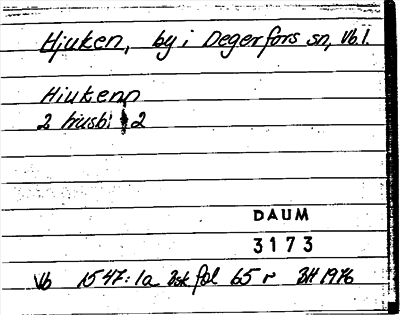 Hjuken, by i Degerfors sn, Vb.l.
Hiukenn
2 husbi 2
DAUM
3173
Vb 1547:1a Bsk fol 65 r BH 1976